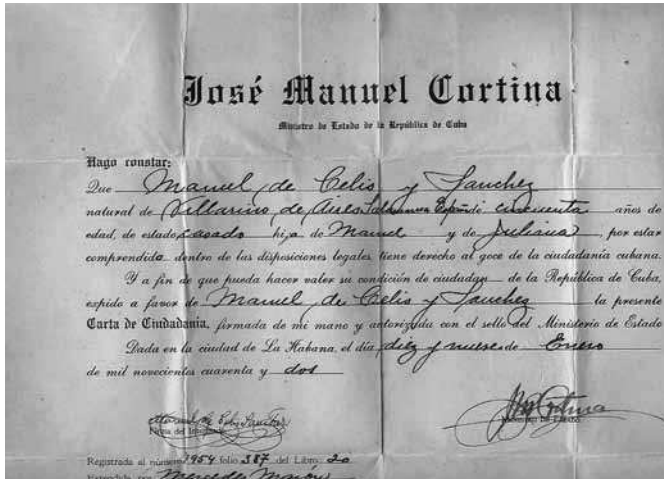 José Manuel Cortina
Ministro de Estado de la República de Cuba
Hago constar:
Que Manuel de Celis y Sanchez
natural de Villarino de Aires Salamanca España de cincuenta años de
edad, de estado casado hijo de Manuel y de Juliana, por estar
comprendido dentro de las disposiciones legales, tiene derecho al goce de la ciudadanía cubana.
Y a fin de que pueda hacer valer su condición de ciudadan de la República de Cuba,
expido a favor de Manuel de Celis y Sanchez la presente
Carta de Ciudadanía, firmada de mi mano y autorizada con el sello del Ministerio de Estado
Dada en la ciudad de La Habana, el día diez y nueve de Enero
de mil novecientos cuarenta y dos
Manuel de Celis Sanchez
Firma del Interesado
Cortina
Registrada al número 1954 folio 387 del Libro 20
Extendida por Mercedes